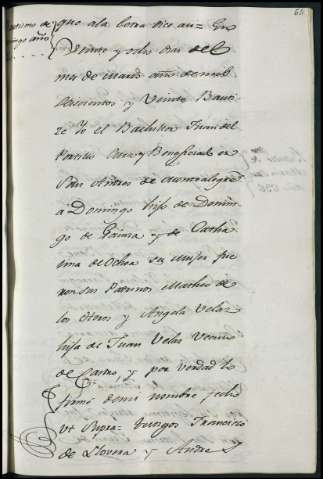 que ala letra dice asi= En
Veinte y ocho dias del
mes de marzo año de mil
seiscientos y Veinte Bauti
ze Yo el Bachiller Juan del
Portillo Cura y Beneficiado en
San Andres de
a Domingo hijo de Domin
go de y de Catha
lina de Ochoa su mujer fue
ron sus Patrinos Matheo de
los Oteros y Angela Velas
hija de Juan Velas Vecino
de Castro, y por verdad lo
firmé demi nombre fecho
Vt Supra= testigos Francisco
de Llovera y Andres